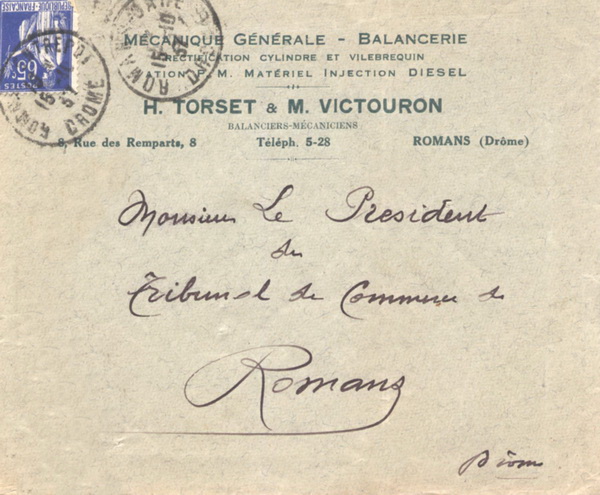 MÉCANIQUE GÉNÉRALE - BALANCERIE
RECTIFICATION CYLINDRE ET VILEBREQUIN
M. MATÉRIEL INJECTION DIESEL
H. TORSET & M. VICTOURON
BALANCIERS-MÉCANICIENS
8, Rue des Remparts, 8 Téléph. 5-28 ROMANS (Drôme)
Monsieur Le President
du
Tribunal de Commerce de
Romans
Drôme
65c
POSTES
REPUBLIQUE FRANÇAISE
ROMANS DROME
15